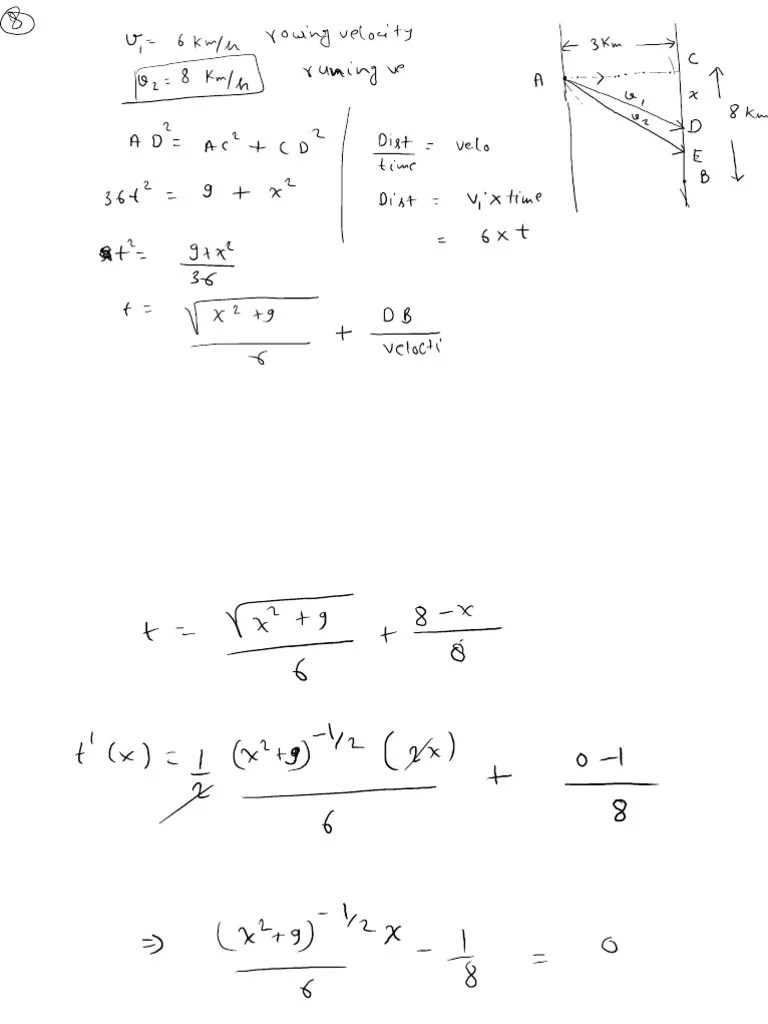 8
v₁ = 6 Km/h rowing velocity
v₂ = 8 Km/h runing ve
AD² = AC² + CD²
36t² = 9 + x²
t² = (9+x²)/36
t = √(x²+9)/6 + DB/velocti
Dist/time = velo
Dist = v₁ x time
= 6 x t
3 Km
A
C
x
v₁
v₂
8 Km
D
E
B
t = √(x²+9)/6 + (8-x)/8
t'(x) = 1/2 (x²+9)^(-1/2) (2x)/6 + (0-1)/8
⇒ (x²+9)^(-1/2) x/6 - 1/8 = 0